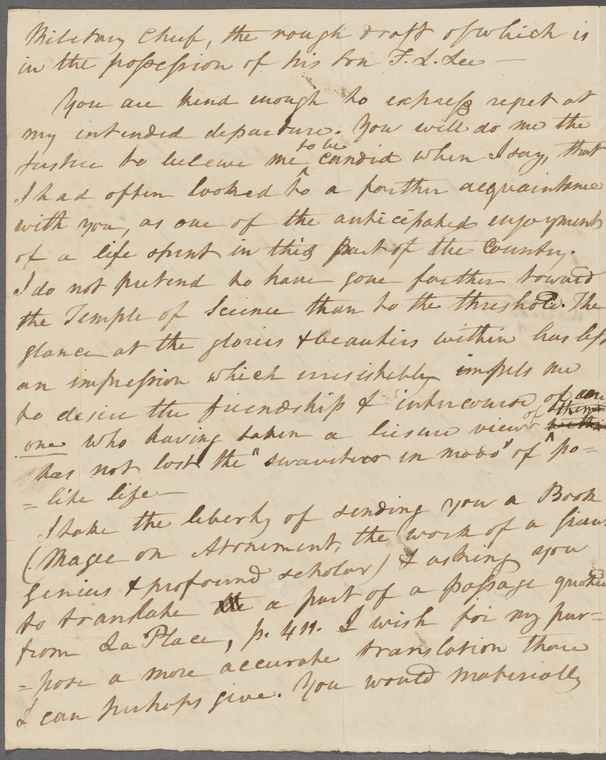 Military Chief, the rough draft of which is
in the possession of his Son F. L. Lee —
You are kind enough to express regret at
my intended departure. You will do me the
Justice to believe me to be candid when I say, that
I had often looked to a farther acquaintance
with you, as one of the anticipated enjoyments
of a life spent in this part of the Country.
I do not pretend to have gone farther toward
the Temple of Science than to the threshold. The
glance at the glories & beauties within has left
an impression which irresistibly impels me
to desire the friendship & intercourse of
one who having taken a leisure view of them
has not lost the "suaviter in modo" of po=
=lite life —
I take the liberty of sending you a Book
(Magee on Atonement, the work of a
Genius & profound scholar) & asking you
to translate a part of a passage quoted
from La Place, p. 411. I wish for my pur=
=pose a more accurate translation than
I can perhaps give. You would materially